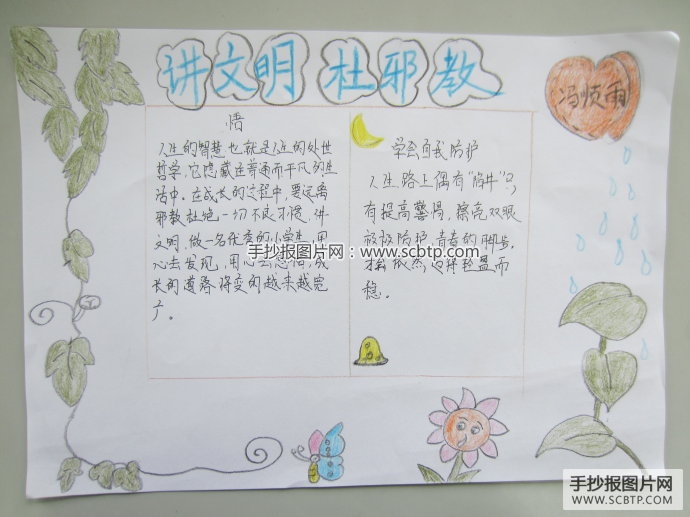 讲文明 杜邪教
冯烦雨
情
人生的智慧也就是人生的处世
哲学,它隐藏在普通而平凡的生
活中。在成长的过程中,要远离
邪教杜绝一切不良习惯,讲
文明,做一名优秀的小学生,用
心去发现,用心去
长的道路将变的越来越宽
广。
学会自我防护
人生路上偶有“陷井”只
有提高警惕,擦亮双眼
积极防护,青春的脚步,
才 依然 轻盈而
稳。
手抄报图片网:www.scbtp.com
手抄报图片网
WWW.SCBTP.COM